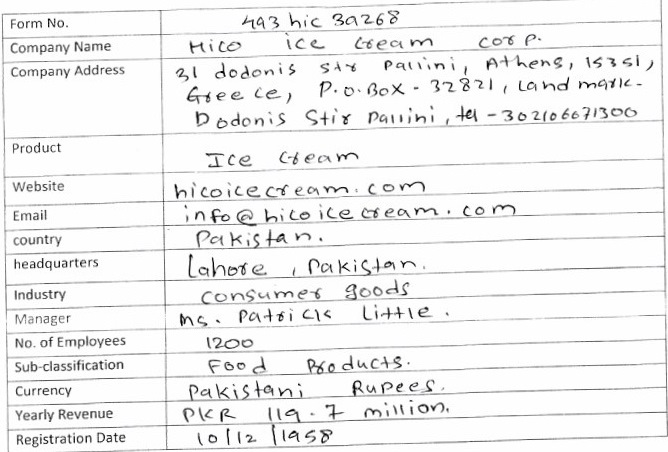 Form No. 493 hic 3a268
Company Name Hico ice cream corp.
Company Address 31 dodonis str Pallini, Athens, 15351,
Greece, P.O.BOX - 32821, Land mark-
Dodonis Stir Pallini, tel - 302106071300
Product Ice Cream
Website hicoicecream.com
Email info@hicoicecream.com
country Pakistan.
headquarters Lahore, Pakistan.
Industry Consumer goods
Manager Ms. Patrick Little.
No. of Employees 1200
Sub-classification Food Products.
Currency Pakistani Rupees.
Yearly Revenue PKR 119.7 million.
Registration Date 10/12/1958